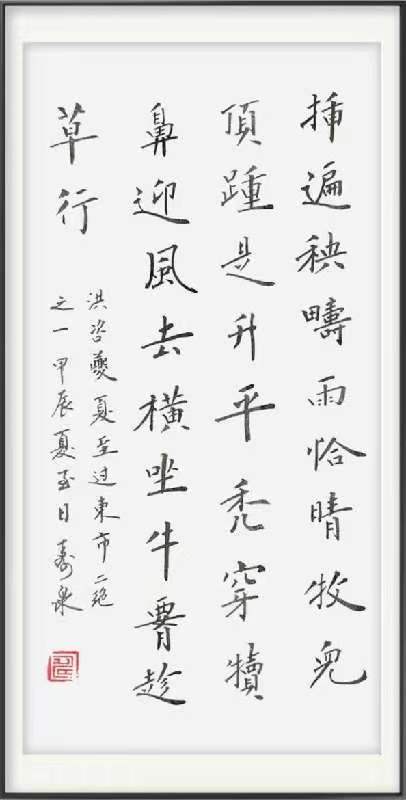 挿遍秧疇雨恰晴牧兒
頂踵是升平禿穿犢
鼻迎風去橫坐牛趁
草行
洪咨夔夏至過東市二絕
之一甲辰夏至日壽泉